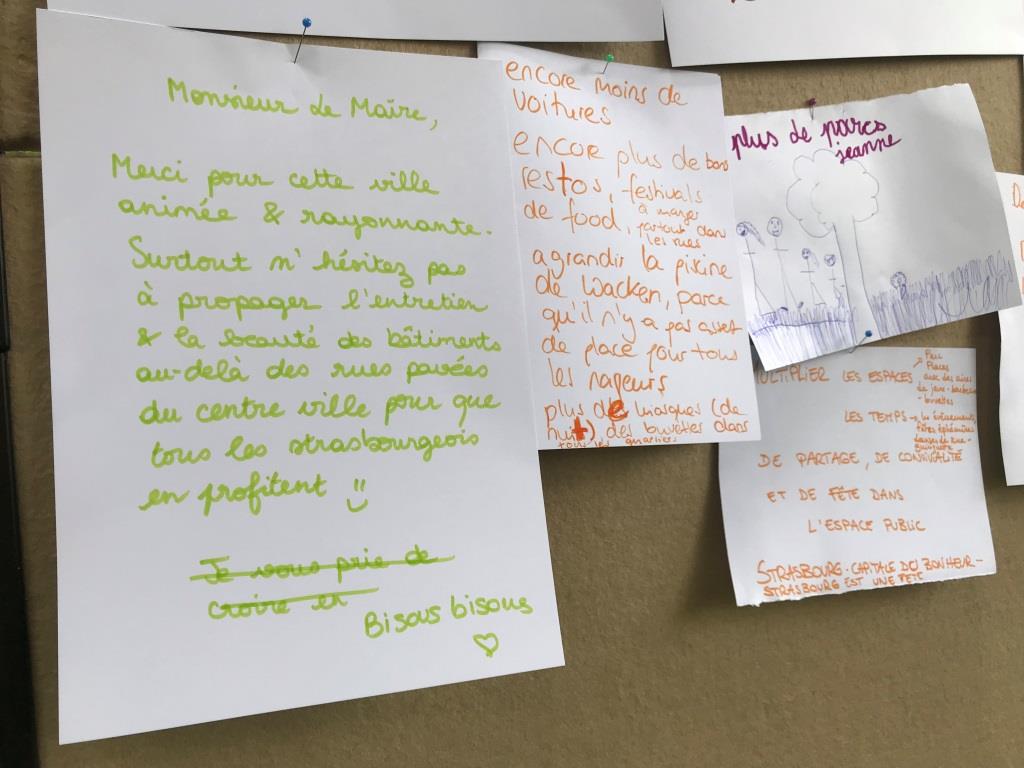 Monsieur le Maire,
Merci pour cette ville
animée & rayonnante.
Surtout n'hésitez pas
à propager l'entretien
& la beauté des bâtiments
au-delà des rues pavées
du centre ville pour que
tous les strasbourgeois
en profitent
Je vous prie de
croire en
Bisous bisous
encore moins de
voitures
encor plus de bons
restos, festivals
de food, à manger
partout dans
les rues
agrandir la piscine
de Wacken, parce
qu'il n'y a pas assez
de place pour tous
les nageurs
plus de kiosques (de
nuit) des buvettes dans
tous les quartiers
plus de parcs
jeanne
MULTIPLIER LES ESPACES → Parc
Places
avec des aires
de jeux - barbecue
- buvettes
LES TEMPS → les événements
fêtes éphémères
DE PARTAGE, DE CONVIVIALITÉ
ET DE FÊTE DANS
L'ESPACE PUBLIC
STRASBOURG - CAPITALE DU BONHEUR -
STRASBOURG EST UNE FETE